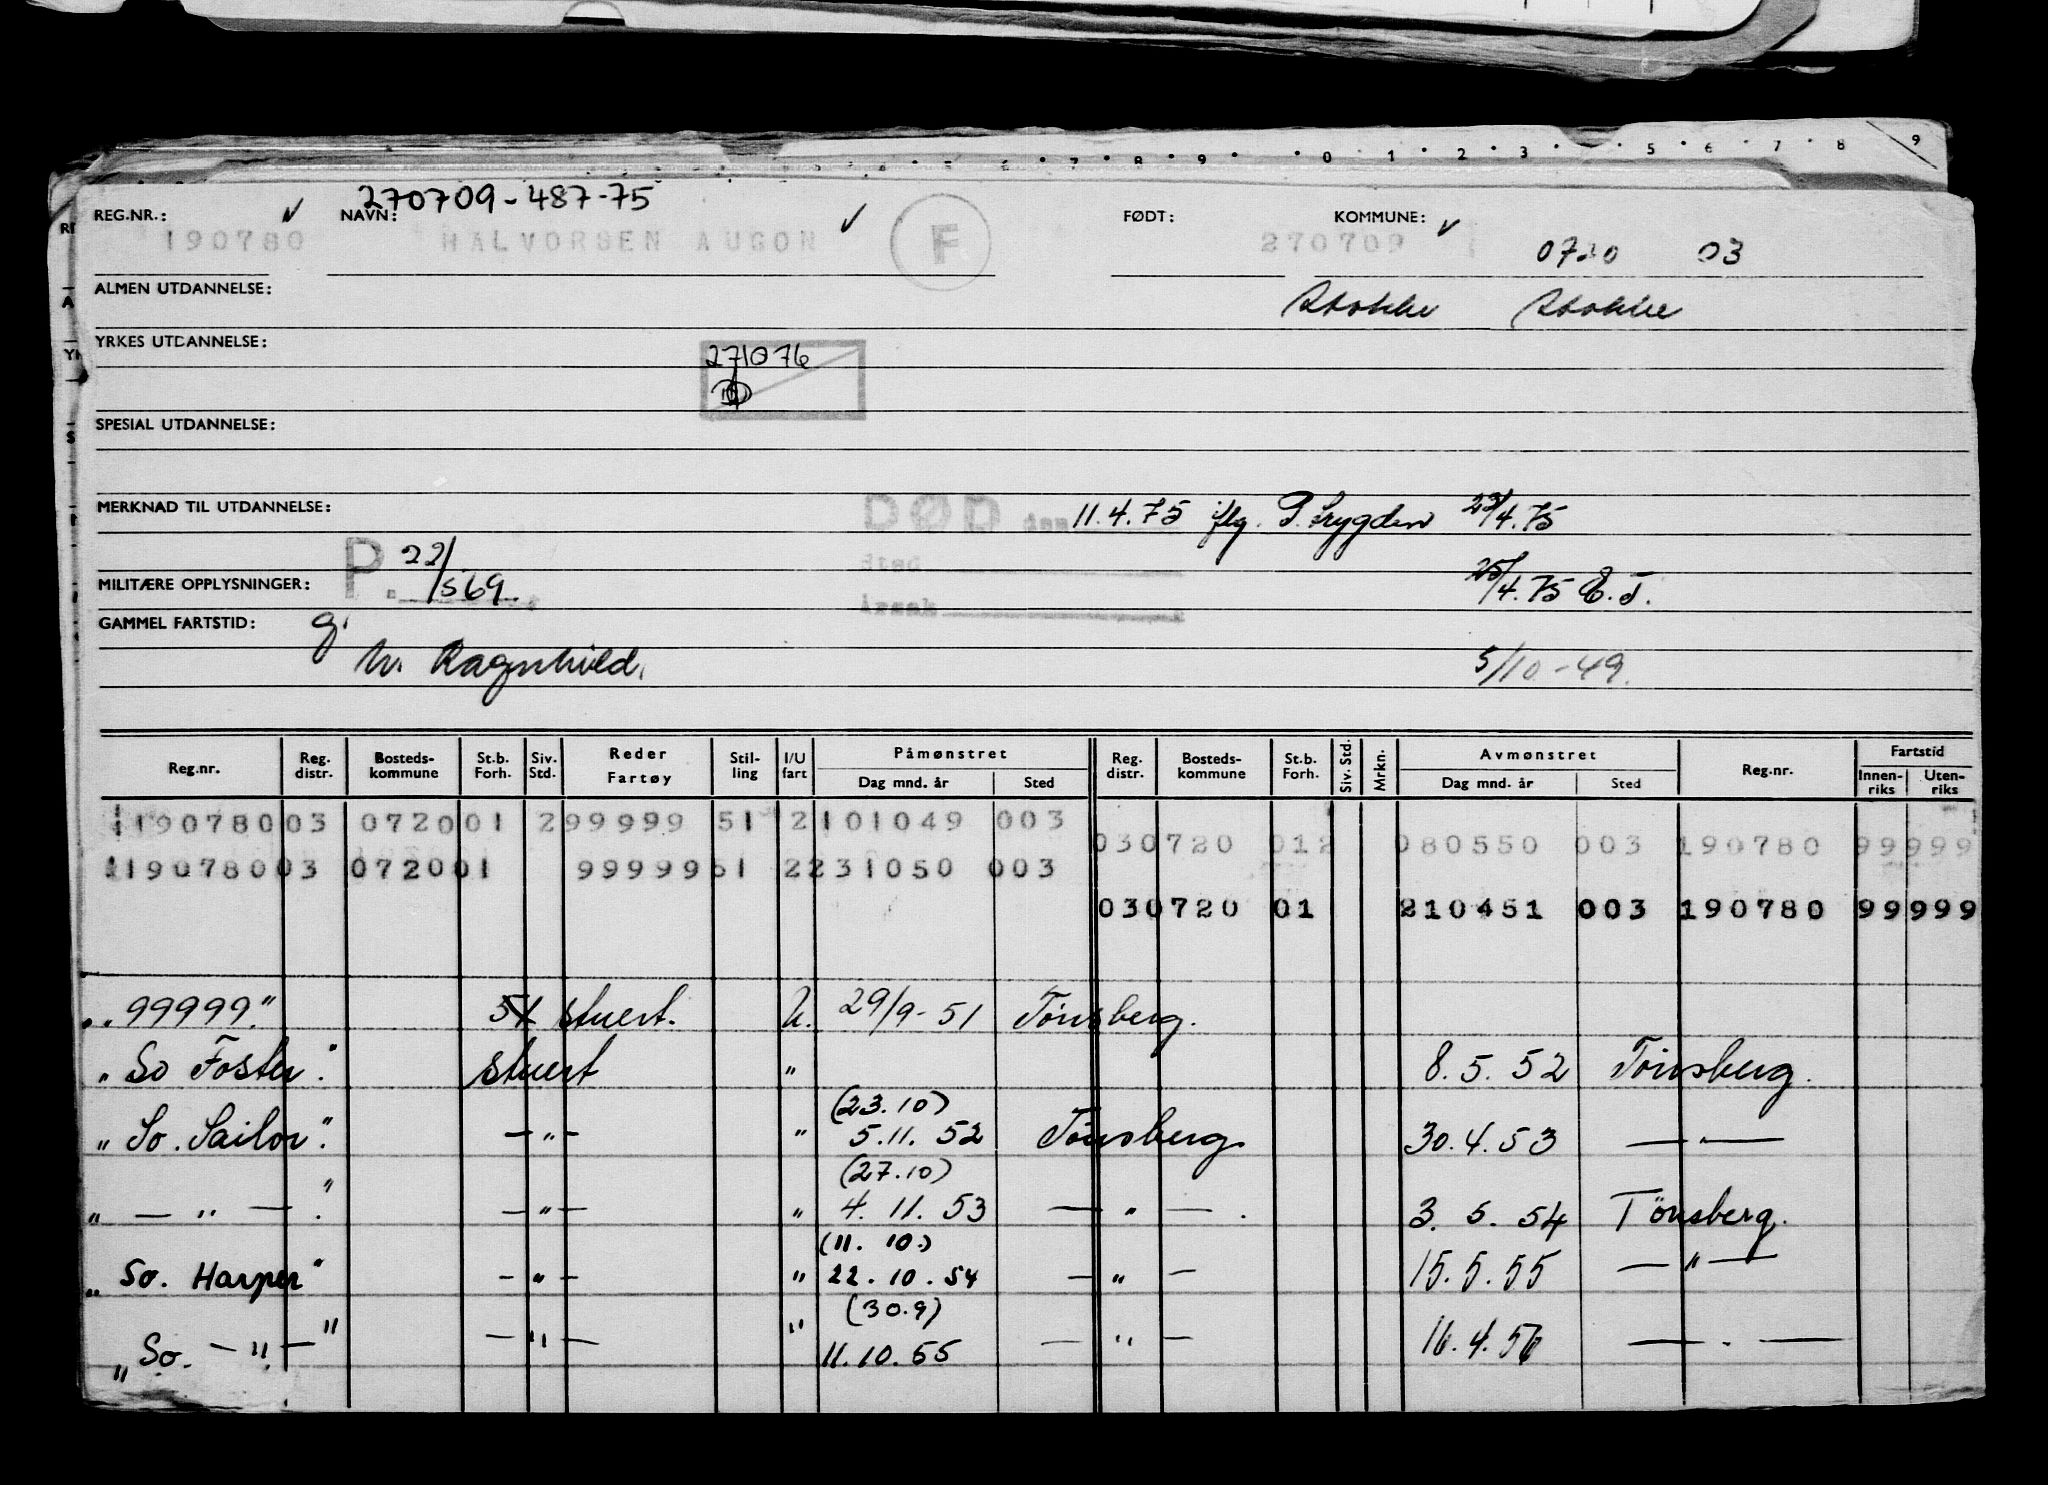 9
0 1 2 3 5 6 7 8
5 6 7 8 9
270709-487-75
REG.NR.: NAVN: FØDT: KOMMUNE:
190780 HALVORSEN AUGON F 270709 03
ALMEN UTDANNELSE:
Stokke Stokke
YRKES UTDANNELSE:
271076
SPESIAL UTDANNELSE:
MERKNAD TIL UTDANNELSE: DØD den 11.4.75 iflg. P. Trygden 23/4.75
Sted
P. 22/569.
MILITÆRE OPPLYSNINGER: 25/4.75 E.T.
Årsak
GAMMEL FARTSTID: g.
M. Ragnhild. 5/10-49.
Reg.nr. Reg. distr. Bosteds-kommune St.b. Forh. Siv. Std. Reder Fartøy Stil-ling I/U fart Påmønstret Dag mnd. år Sted Reg. distr. Bosteds-kommune St.b. Forh. Siv. Std. Mrkn. Avmønstret Dag mnd. år Sted Reg.nr. Fartstid Innen-riks Uten-riks
119078003 072001 299999 51 2101049 003
030720 012 080550 003 190780 99999
119078003 072001 9999951 2231050 003
030720 01 210451 003 190780 99999
" 99999" 51 stuert. U. 29/9-51 Tønsberg.
" So Foster" stuert " 8.5.52 Tønsberg.
(23.10)
" So. Sailor" — " — " 5.11.52 Tønsberg 30.4.53 — " —
(27.10)
" — " — " — " — " 4.11.53 — " — 3.5.54 Tönsberg.
(11.10)
" So. Harper" — " — " 22.10.54 — " — 15.5.55 — " —
(30.9)
" So. — " — " — " — " 11.10.55 — " — 16.4.56 — " —